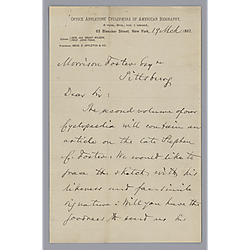 OFFICE APPLETONS' CYCLOPÆDIA OF AMERICAN BIOGRAPHY,
63 Bleecker Street, New York, 19 Mch 1887.
Morrison Foster Esqre
Pittsburg
Dear Sir:
The second volume of our
Cyclopædia will contain an
article on the late Stephen
C. Foster. We would like to
grace the sketch with his
likeness and fac-simile
signature. Will you have the
goodness to send us his